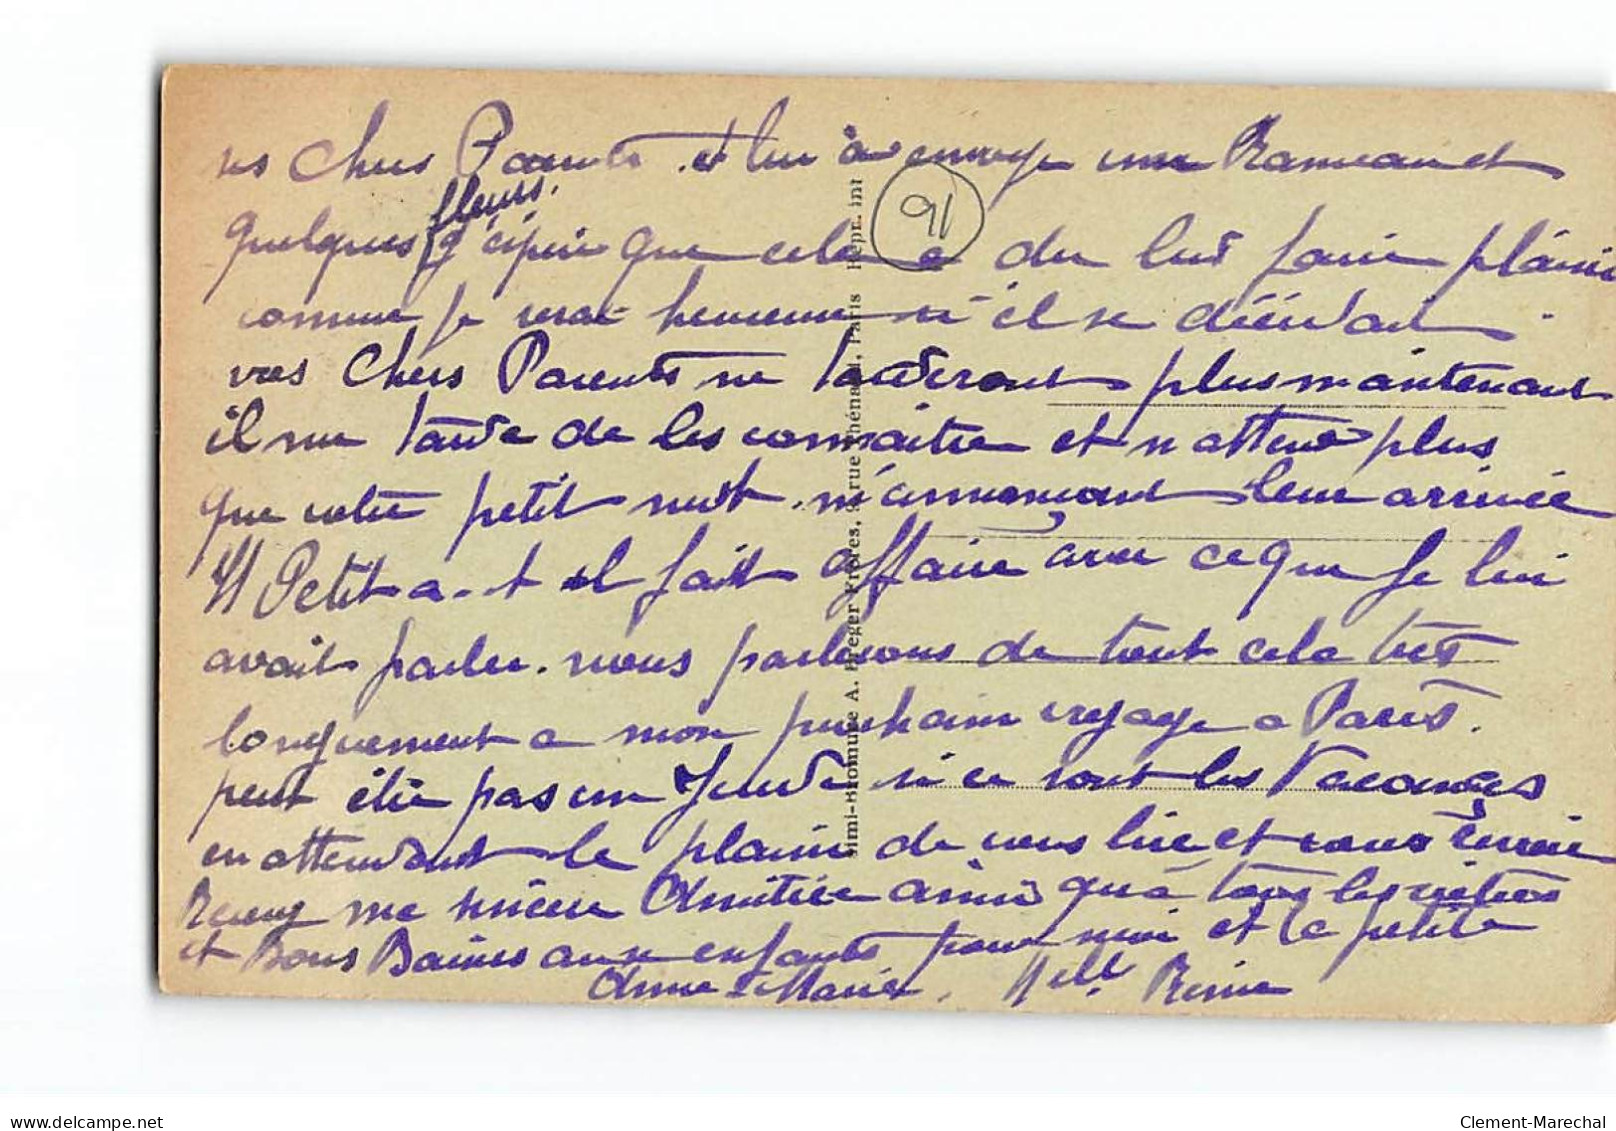 ses Chers Parents. et lui à envoye un Rameau et
quelques fleurs. j'éspère que cela a du lui faire plaisir
comme je serai heureuse si il se décidait
vos Chers Parents ne tarderont plus maintenant
il me tarde de les connaitre et n'attend plus
que votre petit mot. m'annonçant leur arrivée
Mr Petit a-t-il fait affaire avec ce que Je lui
avait parler. nous parlerons de tout cela très
longuement a mon prochain voyage a Paris.
peut étre pas un Jeudi si ce sont les Vacances
en attendant le plaisir de vous lire et vous revoir
Recevez ma sincère Amitiée ainsi qu'à tous les vôtres
et Bons Baisers aux enfants pour moi et la petite
Anne-Marie. Mell Reine
91
Simi-Bromure A. Breger Frères, 9, rue Thénard, Paris Repr. int
www.delcampe.net
Clement-Marechal